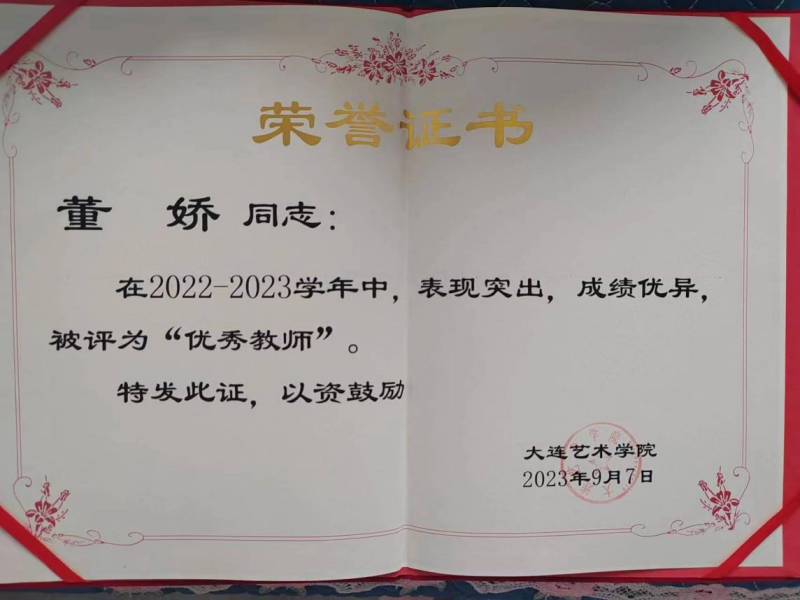 荣誉证书
董 娇 同志：
在2022-2023学年中，表现突出，成绩优异，
被评为“优秀教师”。
特发此证，以资鼓励
大连艺术学院
2023年9月7日